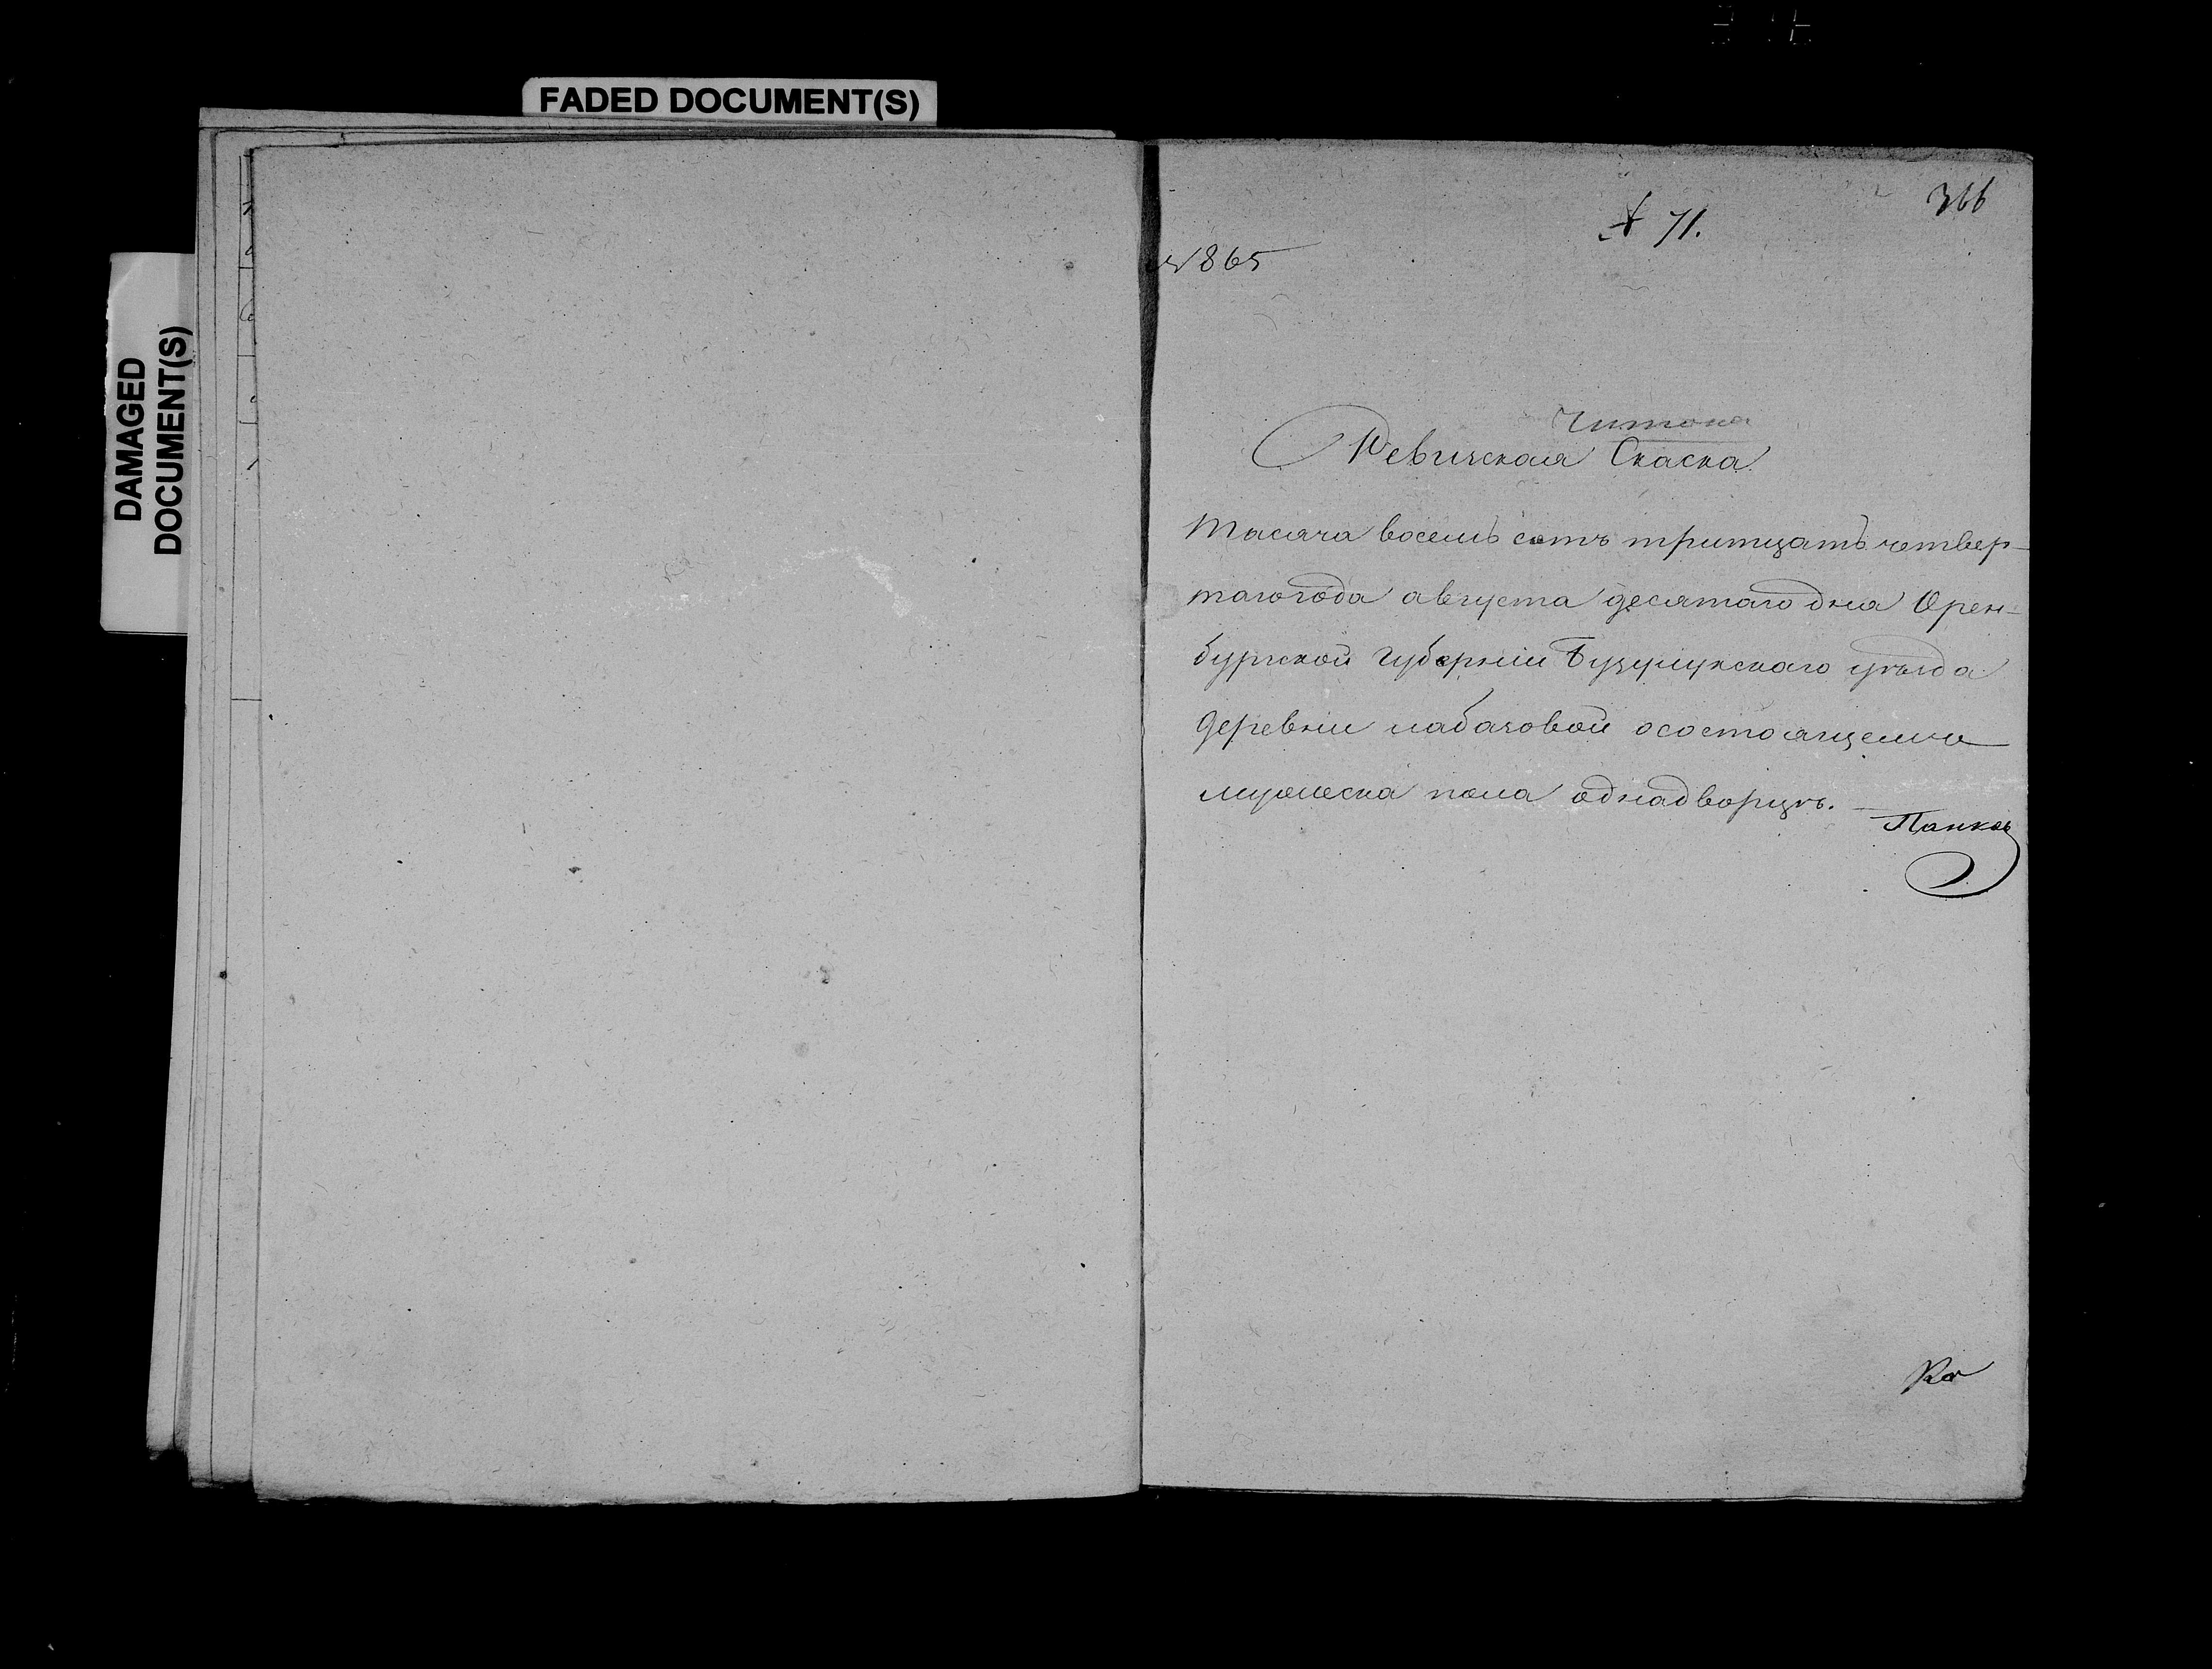 FADED DOCUMENT(S)
DAMAGED
DOCUMENT(S)
366
№ 71.
№ 865
Читона
Ревиская Скаска
Тысяча восемь сотъ тритцать четвер-
таго года августа десятаго дня Орен-
бургской Губерніи Бузулукскаго уѣзда
Деревни лабазовой осостоящеми
мужеска пола однадворцѣ.
Панковъ